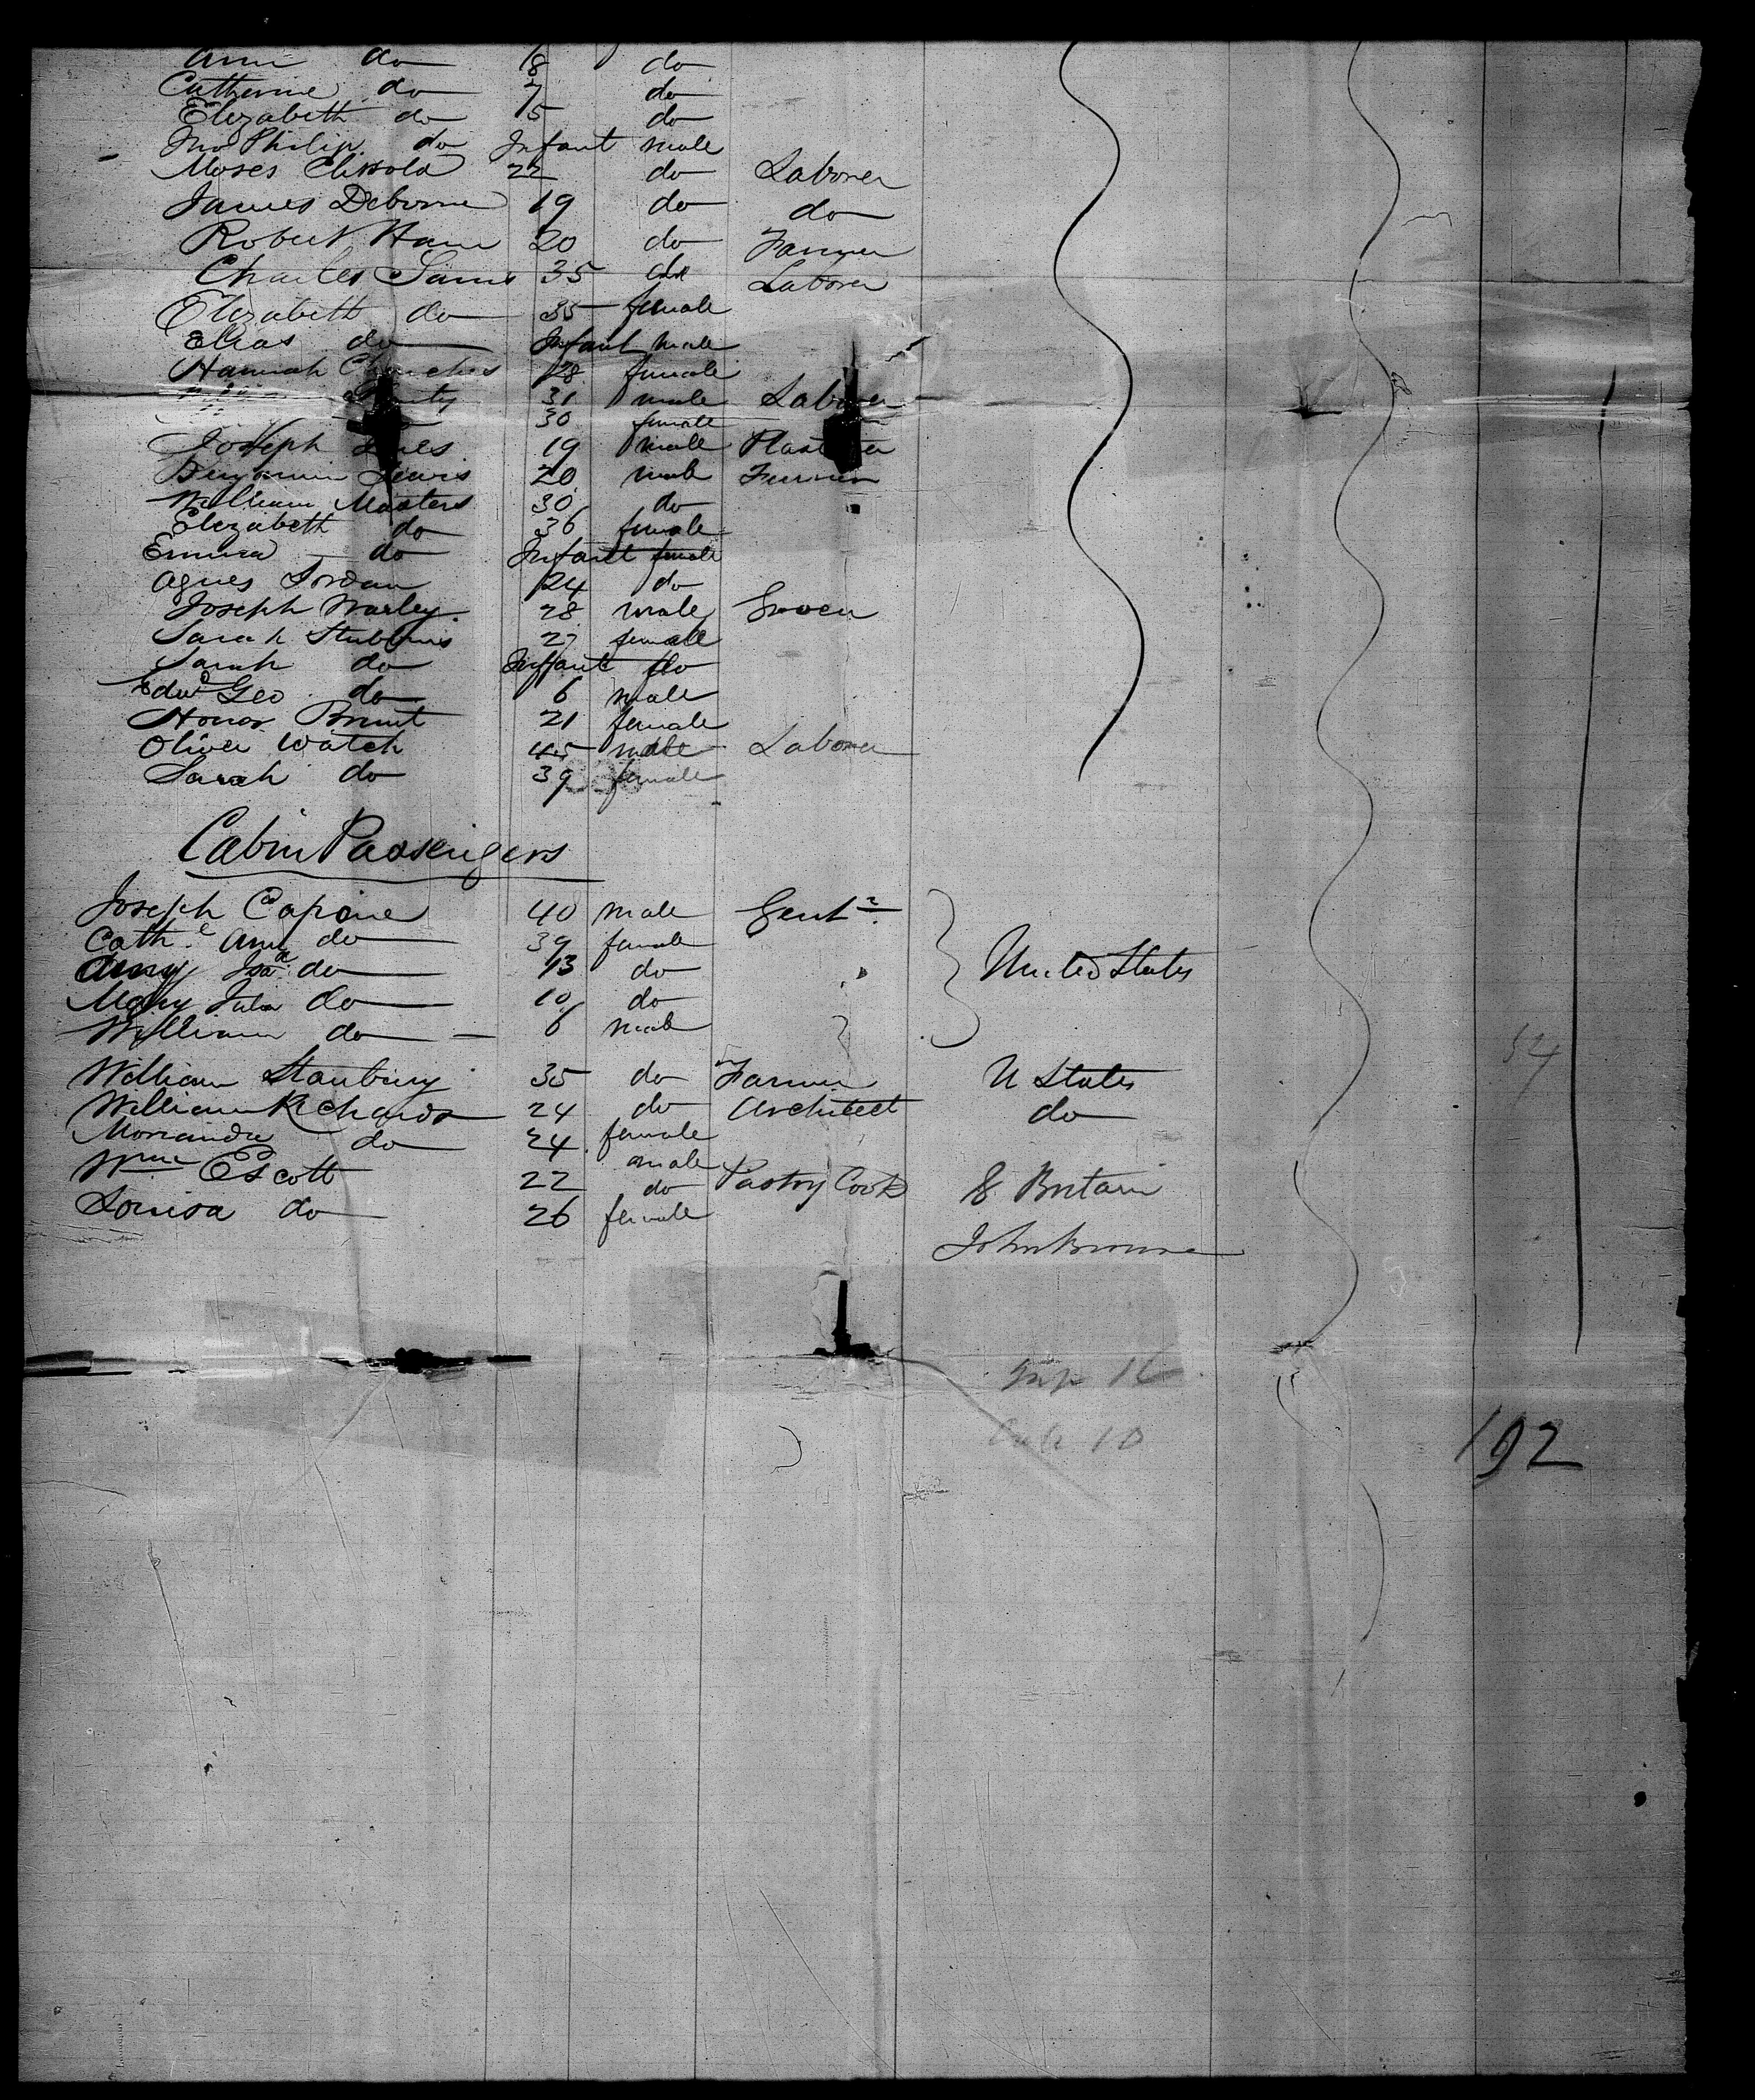 Ann do 18 do
Catherine do 7 do
Elizabeth do 5 do
Jno Philip do Infant male
Moses Clissold 22 do Laborer
James Deborne 19 do do
Robert Ham 20 do Farmer
Charles Sams 35 do Laborer
Elizabeth do 35 female
Elias do Infant male
Hannah Churches 28 female
31 male Laborer
30 female
Joseph 19 male Plasterer
Benjamin Lewis 20 male Farmer
William Masters 30 do
Elizabeth do 36 female
Emma do Infant female
Agnes Jordan 24 do
Joseph Warley 28 male Grocer
Sarah Stubbins 27 female
Sarah do Infant do
Edwd Geo do 6 male
Honor Brunt 21 female
Oliver Watch 45 male Laborer
Sarah do 39 female
Cabin Passengers
Joseph Capone 40 male Gentn
Cathe Ann do 39 female
Amy Isa do 13 do United States
Mary Julia do 10 do
William do 6 male
William Stanbury 35 do Farmer U States
William Richards 24 do Architect do
Morianda do 24 female
male
Wm Escott 22 do Pastry Cook G. Britain
Louisa do 26 female
John Browne
54
10
192